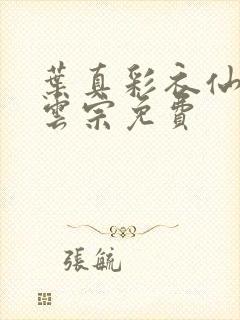 葉真彩衣仙
雲宗免費
張毓